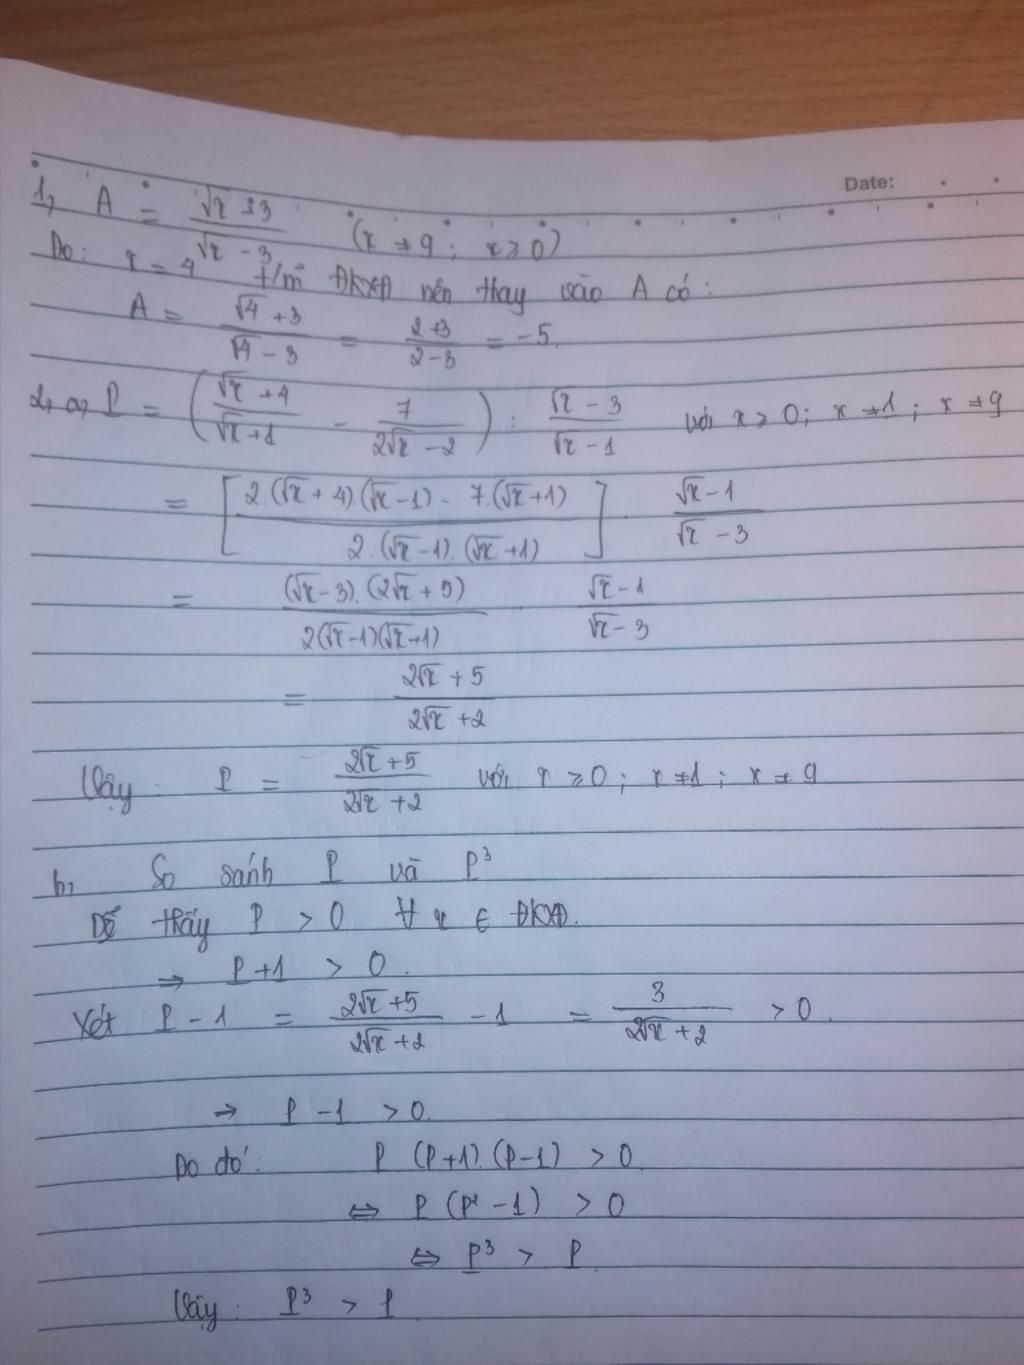 Date:
1, A = (√x + 3)/(√x - 3) (x ≠ 9 ; x ≥ 0)
Do: x = 4 t/m ĐKXĐ nên thay vào A có:
A = (√4 + 3)/(√4 - 3) = (2+3)/(2-3) = -5.
2, a, P = ((√x + 4)/(√x + 1) - 7/(2√x - 2)) : (√x - 3)/(√x - 1) với x ≥ 0; x ≠ 1 ; x ≠ 9
= [(2.(√x + 4).(√x - 1) - 7.(√x + 1))/(2.(√x - 1).(√x + 1))] . (√x - 1)/(√x - 3)
= ((√x - 3).(2√x + 5))/(2(√x - 1)(√x + 1)) . (√x - 1)/(√x - 3)
= (2√x + 5)/(2√x + 2)
Vậy: P = (2√x + 5)/(2√x + 2) với x ≥ 0 ; x ≠ 1 ; x ≠ 9
b, So sánh P và P³
Dễ thấy P > 0 ∀ x ∈ ĐKXĐ.
⇒ P + 1 > 0.
Xét P - 1 = (2√x + 5)/(2√x + 2) - 1 = 3/(2√x + 2) > 0.
⇒ P - 1 > 0.
Do đó: P (P+1).(P-1) > 0
⇔ P (P² - 1) > 0
⇔ P³ > P.
Vậy: P³ > P